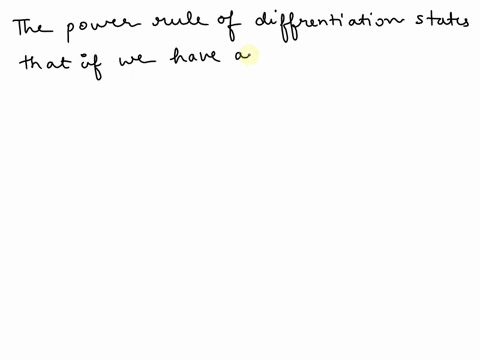 The power rule of diffrentiation states
that if we have a